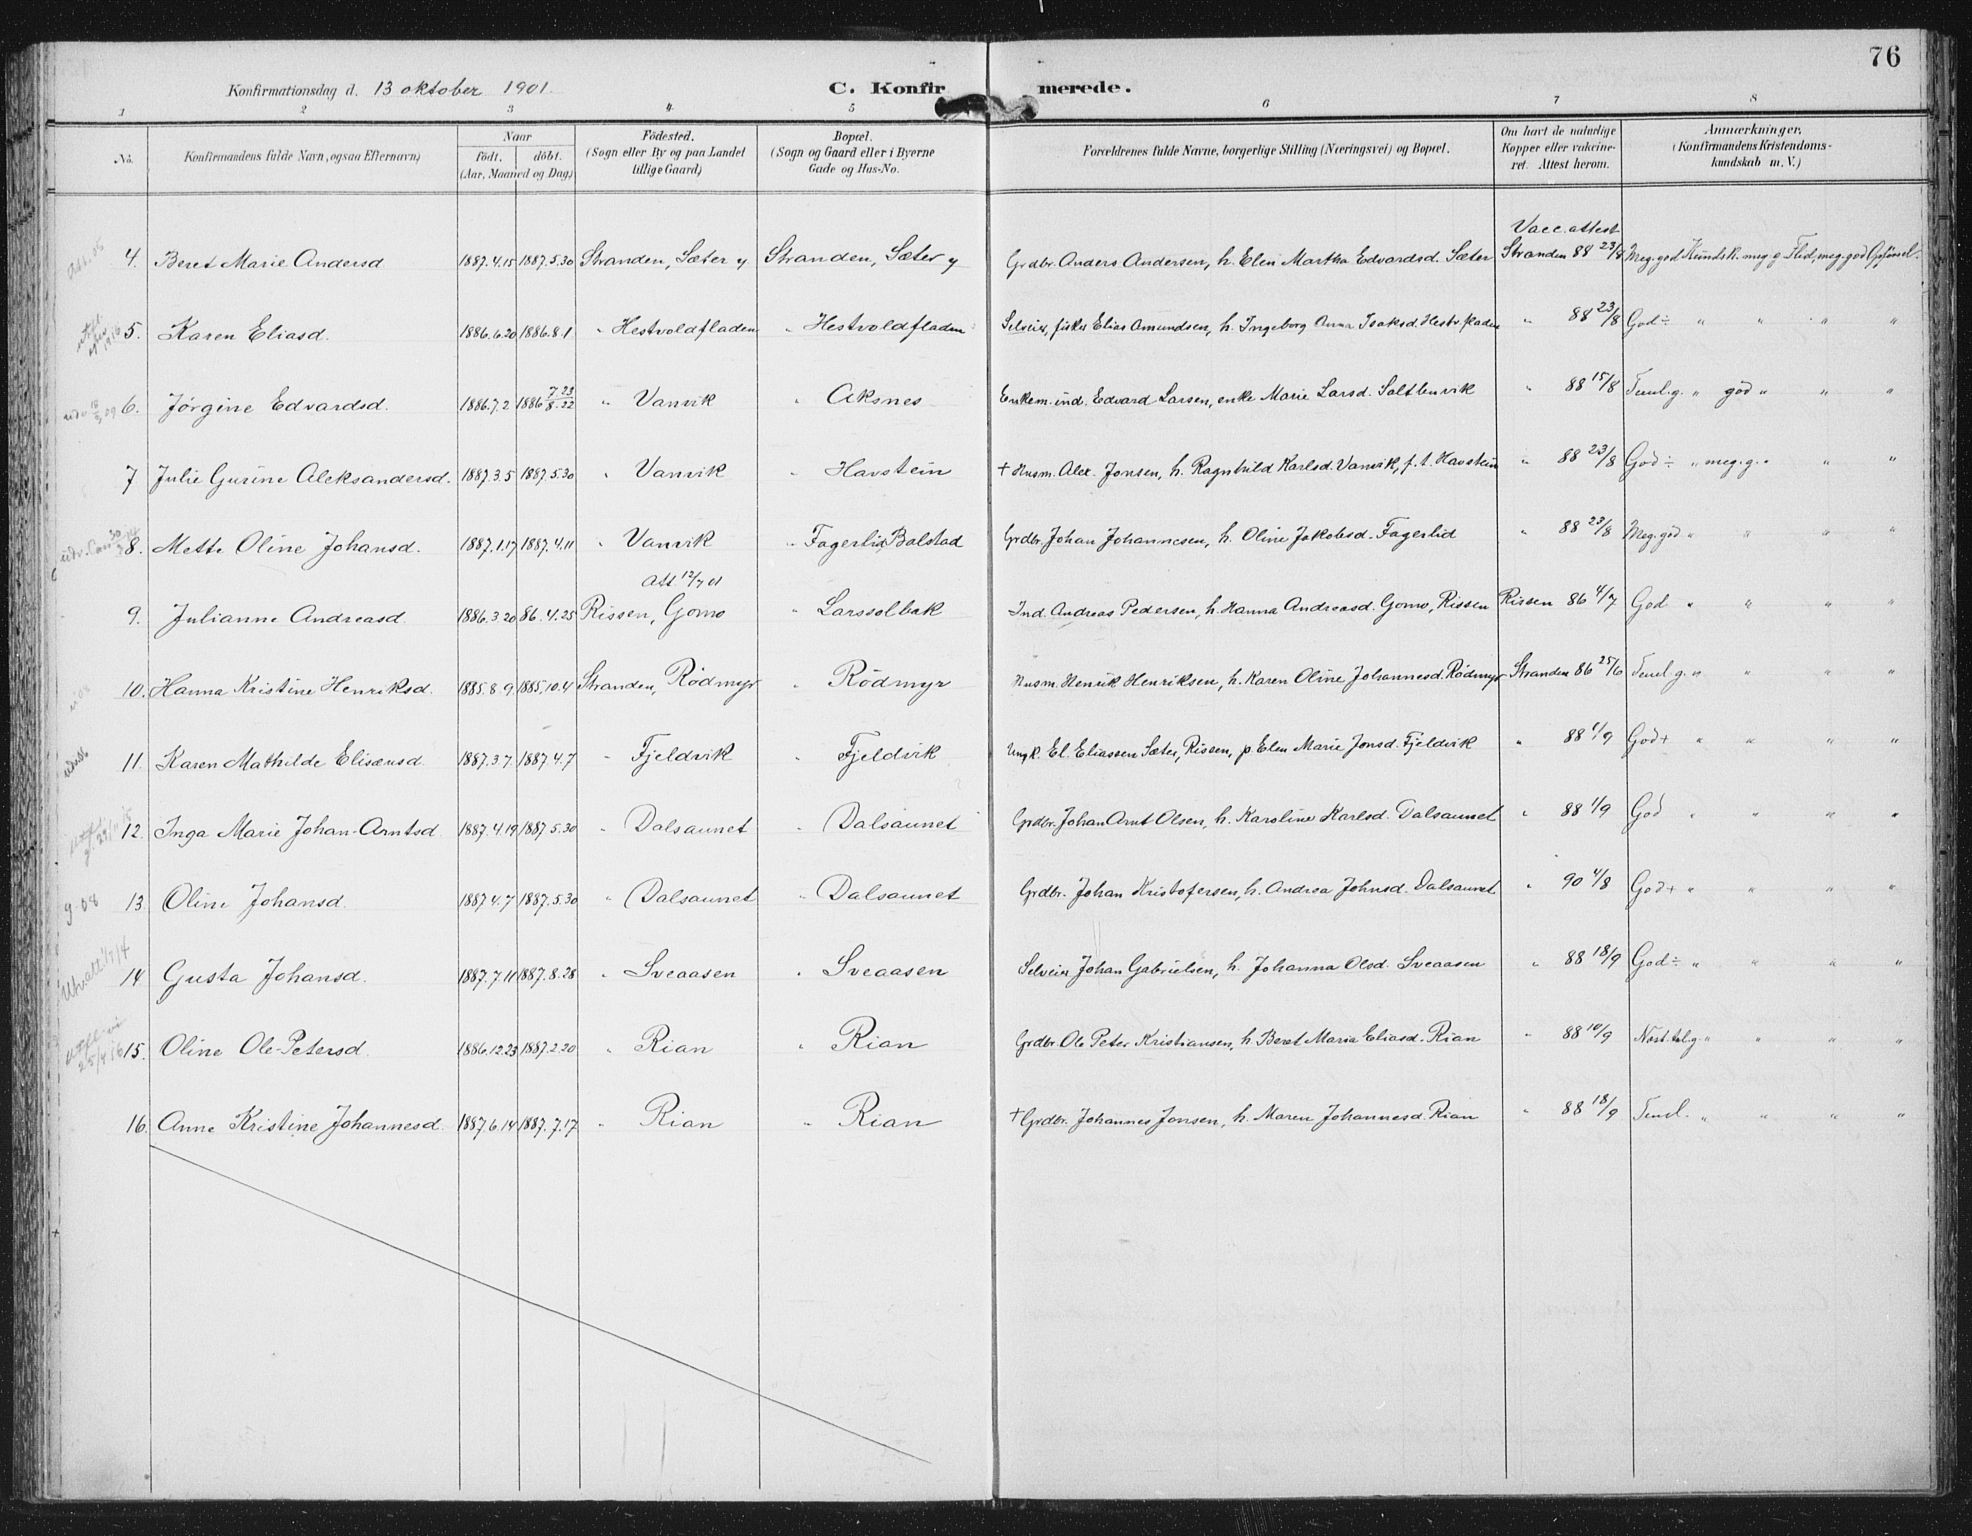 76
Konfirmationsdag d. 13 oktober 1901. C. Konfirmerede.
1 2 3 4 5 6 7 8
No. Konfirmandens fulde Navn, ogsaa Efternavn) Naar födt. döbt. (Aar, Maaned og Dag) Födested. (Sogn eller By og paa Landet tillige Gaard) Bopæl. (Sogn og Gaard eller i Byerne Gade og Hus-No. Forældrenes fulde Navne, borgerlige Stilling (Næringsvei) og Bopæl. Om havt de naturlige Kopper eller vakcineret. Attest herom. Anmærkninger, (Konfirmandens Kristendomskundskab m. V.)
Vacc. attest
4. Beret Marie Andersd 1887.4.15 1887.5.30 Stranden, Sæter y Stranden, Sæter y Grdbr. Anders Andersen, h. Elen Martha Edvardsd. Sæter Stranden 88 23/8 Meg. god Kundsk. meg g Flid, meg. god Opførsel.
5. Karen Eliasd. 1886.6.20 1886.8.1 " Hestvoldfladen " Hestvoldfladen Selveier, fisker Elias Amundsen, h. Ingeborg Anna Isaksd. Hestv fladen " 88 23/8 God ÷ " " " "
6. Jørgine Edvardsd. 1886.7.2 1886 7.23/8.22 " Vanvik " Aksnes Enkem. ind. Edvard Larsen, enke Marie Larsd. Saltbuvik " 88 15/8 Teml. g. " god " " "
7 Julie Gurine Aleksandersd. 1887.3.5 1887.5.30 " Vanvik " Havstein + Husm. Alex. Jonsen, h. Ragnhild Karlsd. Vanvik, f. t. Havstein " 88 23/8 God ÷ " meg. g. " " "
8. Mette Oline Johansd. 1887.1.17 1887.4.11 " Vanvik " Fagerlid Balstad Grdbr. Johan Johannesen, h. Oline Jakobsd. Fagerlid " 88 23/8 Meg. god " " " "
Att. 12/7 01
9. Julianne Andreasd. 1886.3.20 86.4.25 Rissen, Gomo " Larssolbak Ind. Andreas Pedersen, h. Hanna Andreasd. Gomo, Rissen Rissen 86 4/7 God " " " "
10. Hanna Kristine Henriksd. 1885.8.9 1885.10.4 Stranden, Rödmyr " Rödmyr Husm. Henrik Henriksen, h. Karen Oline Johannesd. Rödmyr Stranden 86 25/6 Teml. g. " " " "
11. Karen Mathilde Elisæusd. 1887.3.7 1887.4.7 " Fjeldvik " Fjeldvik Ungk. El. Eliassen Sæter, Rissen, p. Elen Marie Jonsd. Fjeldvik " 88 1/9 God + " " " "
12. Inga Marie Johan-Arntsd. 1887.4.19 1887.5.30 " Dalsaunet " Dalsaunet Grdbr. Johan Arnt Olsen, h. Karoline Karlsd. Dalsaunet " 88 1/9 God " " " "
g-08 13 Oline Johansd. 1887.4.7 1887.5.30 " Dalsaunet " Dalsaunet Grdbr. Johan Kristofersen, h. Andrea Johnsd. Dalsaunet " 90 4/8 God + " " " "
14 Gusta Johansd. 1887.7.11 1887.8.28 " Sveaasen " Sveaasen Selveier Johan Gabrielsen, h. Johanna Olsd. Sveaasen " 88 18/9 God ÷ " " " "
15. Oline Ole-Petersd. 1886.12.23 1887.2.20 " Rian " Rian Grdbr. Ole Peter Kristiansen, h. Beret Maria Eliasd. Rian " 88 10/9 Næst. tel. g " " " "
16. Anne Kristine Johannesd. 1887.6.14 1887.7.17 " Rian " Rian + Grdbr. Johannes Jonsen, h. Maren Johannesd. Rian " 88 18/9 Teml. " " " "